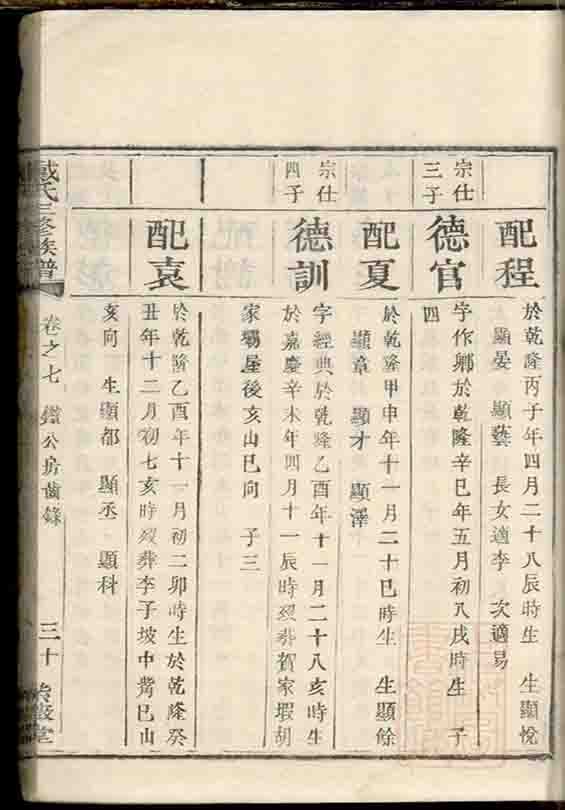 配程
於乾隆丙子年四月二十八辰時生 生顯悅
顯晏 顯藝 長女適李 次適易
宗仕
三子
德官
字作鄉於乾隆辛巳年五月初八戌時生 子
四
配夏
於乾隆甲申年十一月二十巳時生 生顯餘
顯章 顯才 顯澤
宗仕
四子
德訓
字經典於乾隆乙酉年十一月二十八亥時生
於嘉慶辛未年四月十一辰時歿葬賀家塅胡
家塲屋後亥山巳向 子三
配袁
於乾隆乙酉年十一月初二卯時生於乾隆癸
丑年十二月初七亥時歿葬李子坡中嘴巳山
亥向 生顯都 顯丞 顯科
戴氏三修族譜
卷之七 公房齒錄
三十
堂